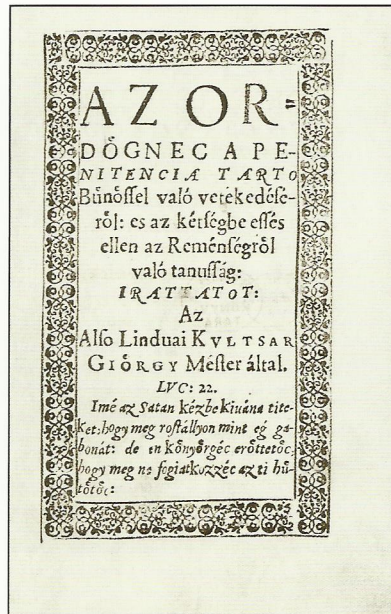 AZ OR=
DŐGNEC A PE-
NITENCIA TARTO
Bűnőſſel való vetekedéſe-
ről: es az kétſégbe eſſés
ellen az Reménſégről
való tanuſſág:
IRATTATOT:
Az
Alſo Linduai KVLTSAR
GIŐRGY Meſter által.
LVC: 22.
Imé az Satan kézbe kiuána tite-
ket: hogy meg roſtállyon mint eg ga-
bonát: de en kőnyőrgéc erőttetőc,
hogy meg ne fogiatkozzéc az ti hű-
tőtőc: